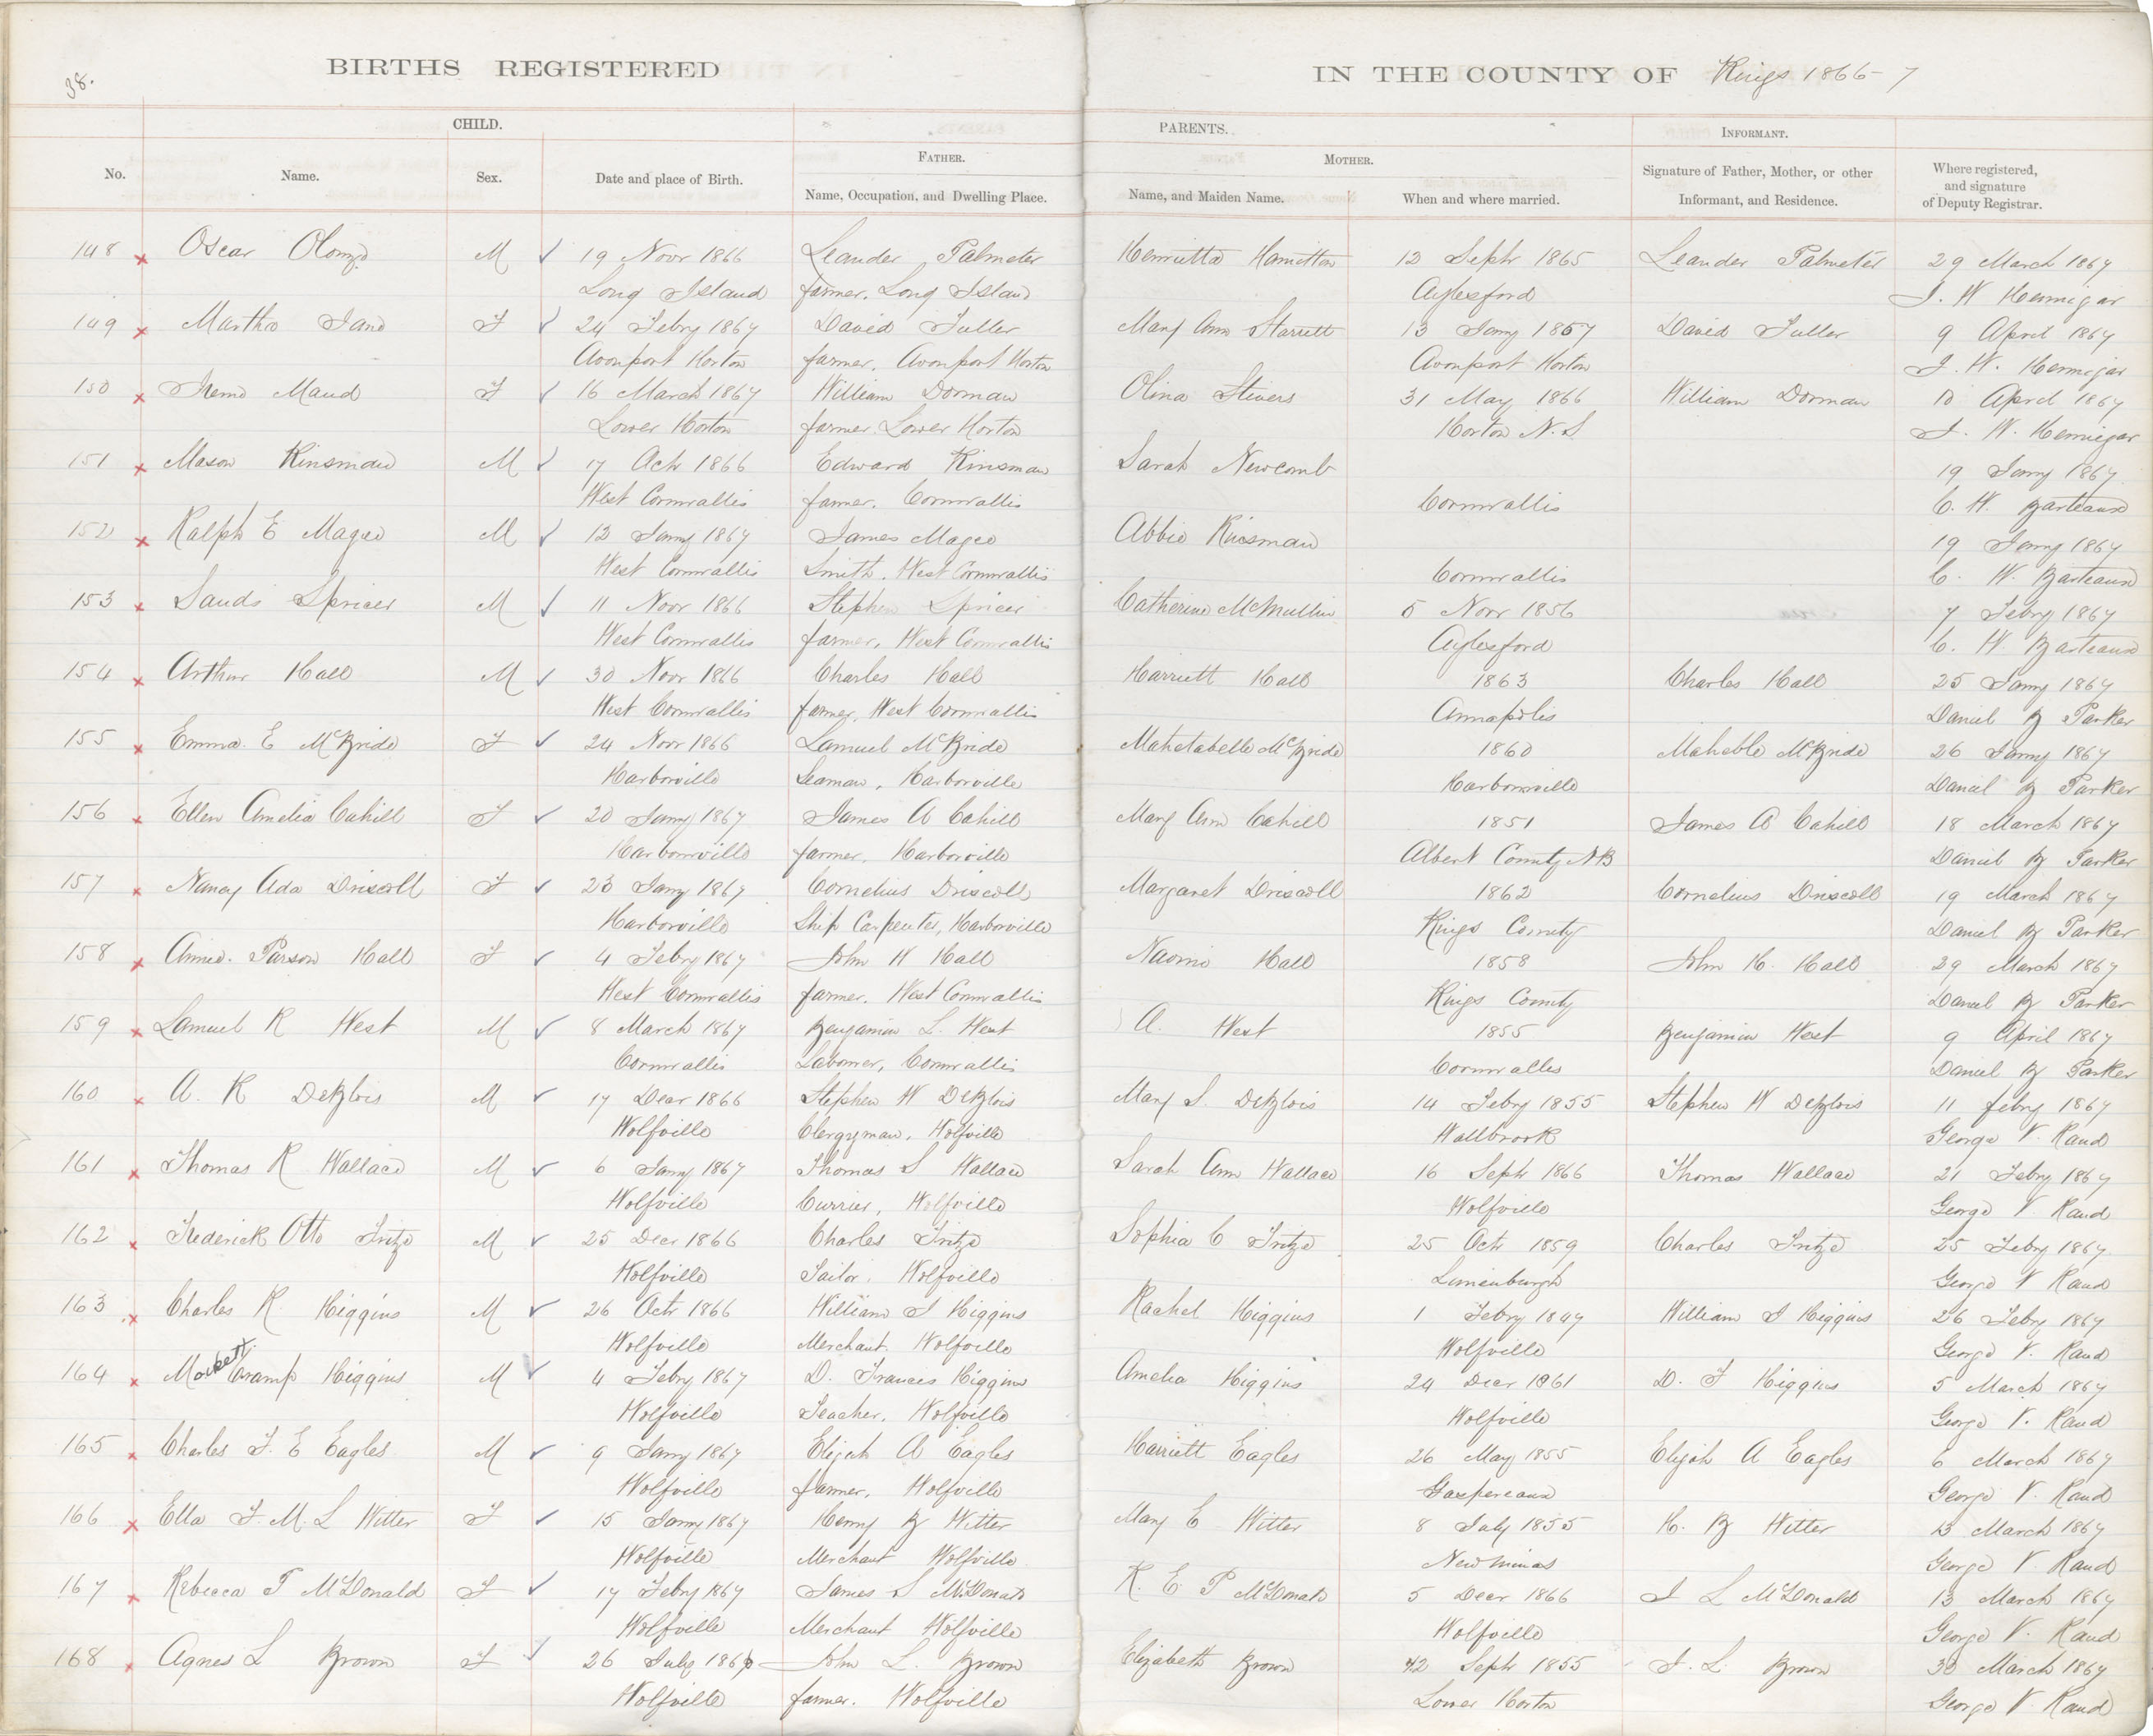 38.
BIRTHS REGISTERED IN THE COUNTY OF Kings 1866-7
CHILD. PARENTS. INFORMANT.
FATHER. MOTHER.
No. Name. Sex. Date and place of Birth. Name, Occupation, and Dwelling Place. Name, and Maiden Name. When and where married. Signature of Father, Mother, or other Informant, and Residence. Where registered, and signature of Deputy Registrar.
148 Oscar M 19 Novr 1866 Leander Palmeter Henrietta Hamilton 12 Septr 1865 Leander Palmeter 29 March 1867
Long Island farmer, Long Island Aylesford J. W. Hennigar
149 Martha Jane F 24 Febry 1867 David Fuller Mary Ann Starrett 13 Jany 1857 David Fuller 9 April 1867
Avonport Horton farmer, Avonport Horton Avonport Horton J. W. Hennigar
150 Maud F 16 March 1867 William Dorman Olina Stivers 31 May 1866 William Dorman 10 April 1867
Lower Horton farmer. Lower Horton Horton N.S J. W. Hennigar
151 Mason Kinsman M 17 Octr 1866 Edward Kinsman Sarah Newcomb 19 Jany 1867
West Cornwallis farmer. Cornwallis Cornwallis C. W. Barteaux
152 Ralph E Magee M 12 Jany 1867 James Magee Abbie Kinsman 19 Jany 1867
West Cornwallis Smith. West Cornwallis Cornwallis C. W. Barteaux
153 Spicer M 11 Novr 1866 Stephen Spicer Catherine McMullin 5 Novr 1856 7 Febry 1867
West Cornwallis farmer, West Cornwallis Aylesford C. W. Barteaux
154 Arthur Hall M 30 Novr 1866 Charles Hall Harriett Hall 1863 Charles Hall 25 Jany 1867
West Cornwallis farmer, West Cornwallis Annapolis Daniel B Parker
155 Emma E McBride F 24 Novr 1866 Samuel McBride Mahetabelle McBride 1860 Maheble McBride 26 Jany 1867
Harborville Seaman, Harborville Harborville Daniel B Parker
156 Ellen Amelia Cahill F 20 Jany 1867 James A Cahill Mary Ann Cahill 1851 James A Cahill 18 March 1867
Harborville farmer, Harborville Albert County NB Daniel B Parker
157 Nancy Ada Driscoll F 23 Jany 1867 Cornelius Driscoll Margaret Driscoll 1862 Cornelius Driscoll 19 March 1867
Harborville Ship Carpenter, Harborville Kings County Daniel B Parker
158 Annie. Parson Hall F 4 Febry 1867 John H Hall Naomi Hall 1858 John H. Hall 29 March 1867
West Cornwallis farmer. West Cornwallis Kings County Daniel B Parker
159 Samuel R West M 8 March 1867 Benjamin L. West A. West 1855 Benjamin West 9 April 1867
Cornwallis Laborer, Cornwallis Cornwallis Daniel B Parker
160 A. R DeBlois M 17 Decr 1866 Stephen W DeBlois Mary S. DeBlois 14 Febry 1855 Stephen W DeBlois 11 febry 1867
Wolfville Clergyman, Wolfville Wallbrook George V. Rand
161 Thomas R Wallace M 6 Jany 1867 Thomas S Wallace Sarah Ann Wallace 16 Septr 1866 Thomas Wallace 21 Febry 1867
Wolfville Currier, Wolfville Wolfville George V. Rand
162 Frederick Otto Fritze M 25 Decr 1866 Charles Fritze Sophia C Fritze 25 Octr 1859 Charles Fritze 25 Febry 1867
Wolfville Tailor, Wolfville Lunenburgh George V Rand
163 Charles R. Higgins M 26 Octr 1866 William J Higgins Rachel Higgins 1 Febry 1847 William J Higgins 26 Febry 1867
Wolfville Merchant. Wolfville Wolfville George V. Rand
164 Mockett Cramp Higgins M 4 Febry 1867 D. Frances Higgins Amelia Higgins 24 Decr 1861 D. F Higgins 5 March 1867
Wolfville Teacher, Wolfville Wolfville George V. Rand
165 Charles F. E Eagles M 9 Jany 1867 Elijah A Eagles Harriett Eagles 26 May 1855 Elijah A Eagles 6 March 1867
Wolfville farmer, Wolfville Gaspereaux George V. Rand
166 Ella F. M. L Witter F 15 Jany 1867 Henry B Witter Mary E Witter 8 July 1855 H. B Witter 13 March 1867
Wolfville Merchant Wolfville New Minas George V Rand
167 Rebecca P McDonald F 17 Febry 1867 James S McDonald R. E. P McDonald 5 Decr 1866 J L McDonald 13 March 1867
Wolfville Merchant Wolfville Wolfville George V. Rand
168 Agnes L Brown F 26 July 1866 John L. Brown Elizabeth Brown Septr 1855 J. L. Brown 30 March 1867
Wolfville farmer. Wolfville Lower Horton George V. Rand